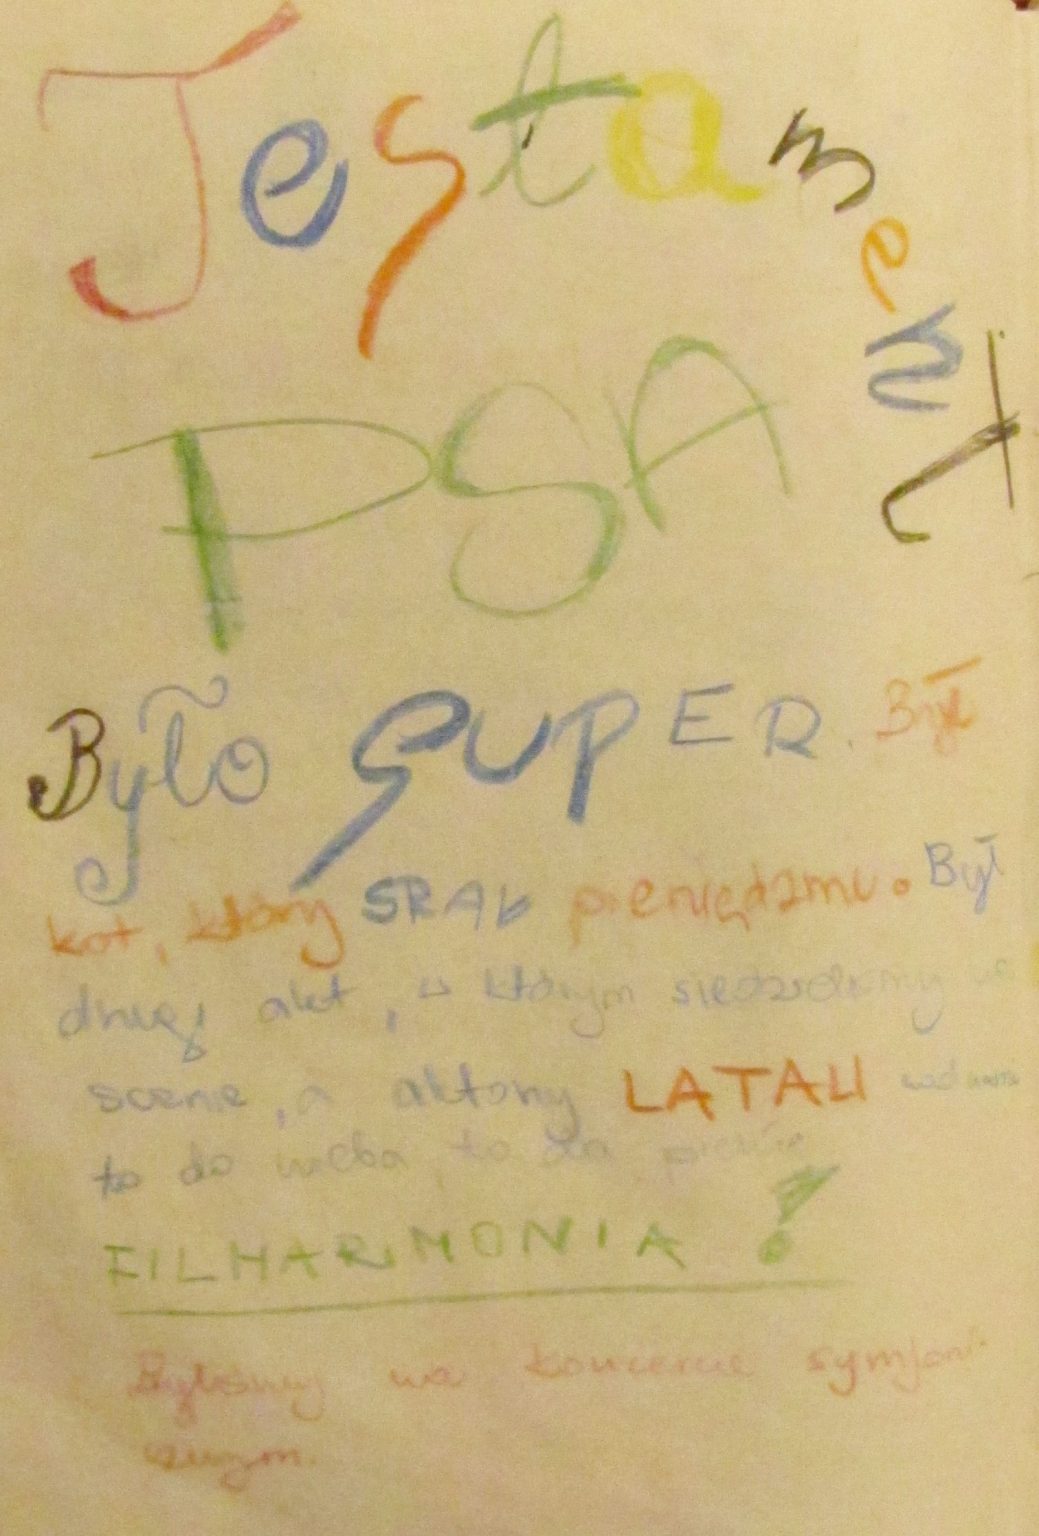 Testament
PSA
Było SUPER. Był
kot, który SRAŁ pieniędzmi. Był
drugi akt, w którym siedzieliśmy na
scenie, a aktorzy LATALI
to do nieba, to do
FILHARMONIA!
Byliśmy na koncercie symfoni-
cznym.